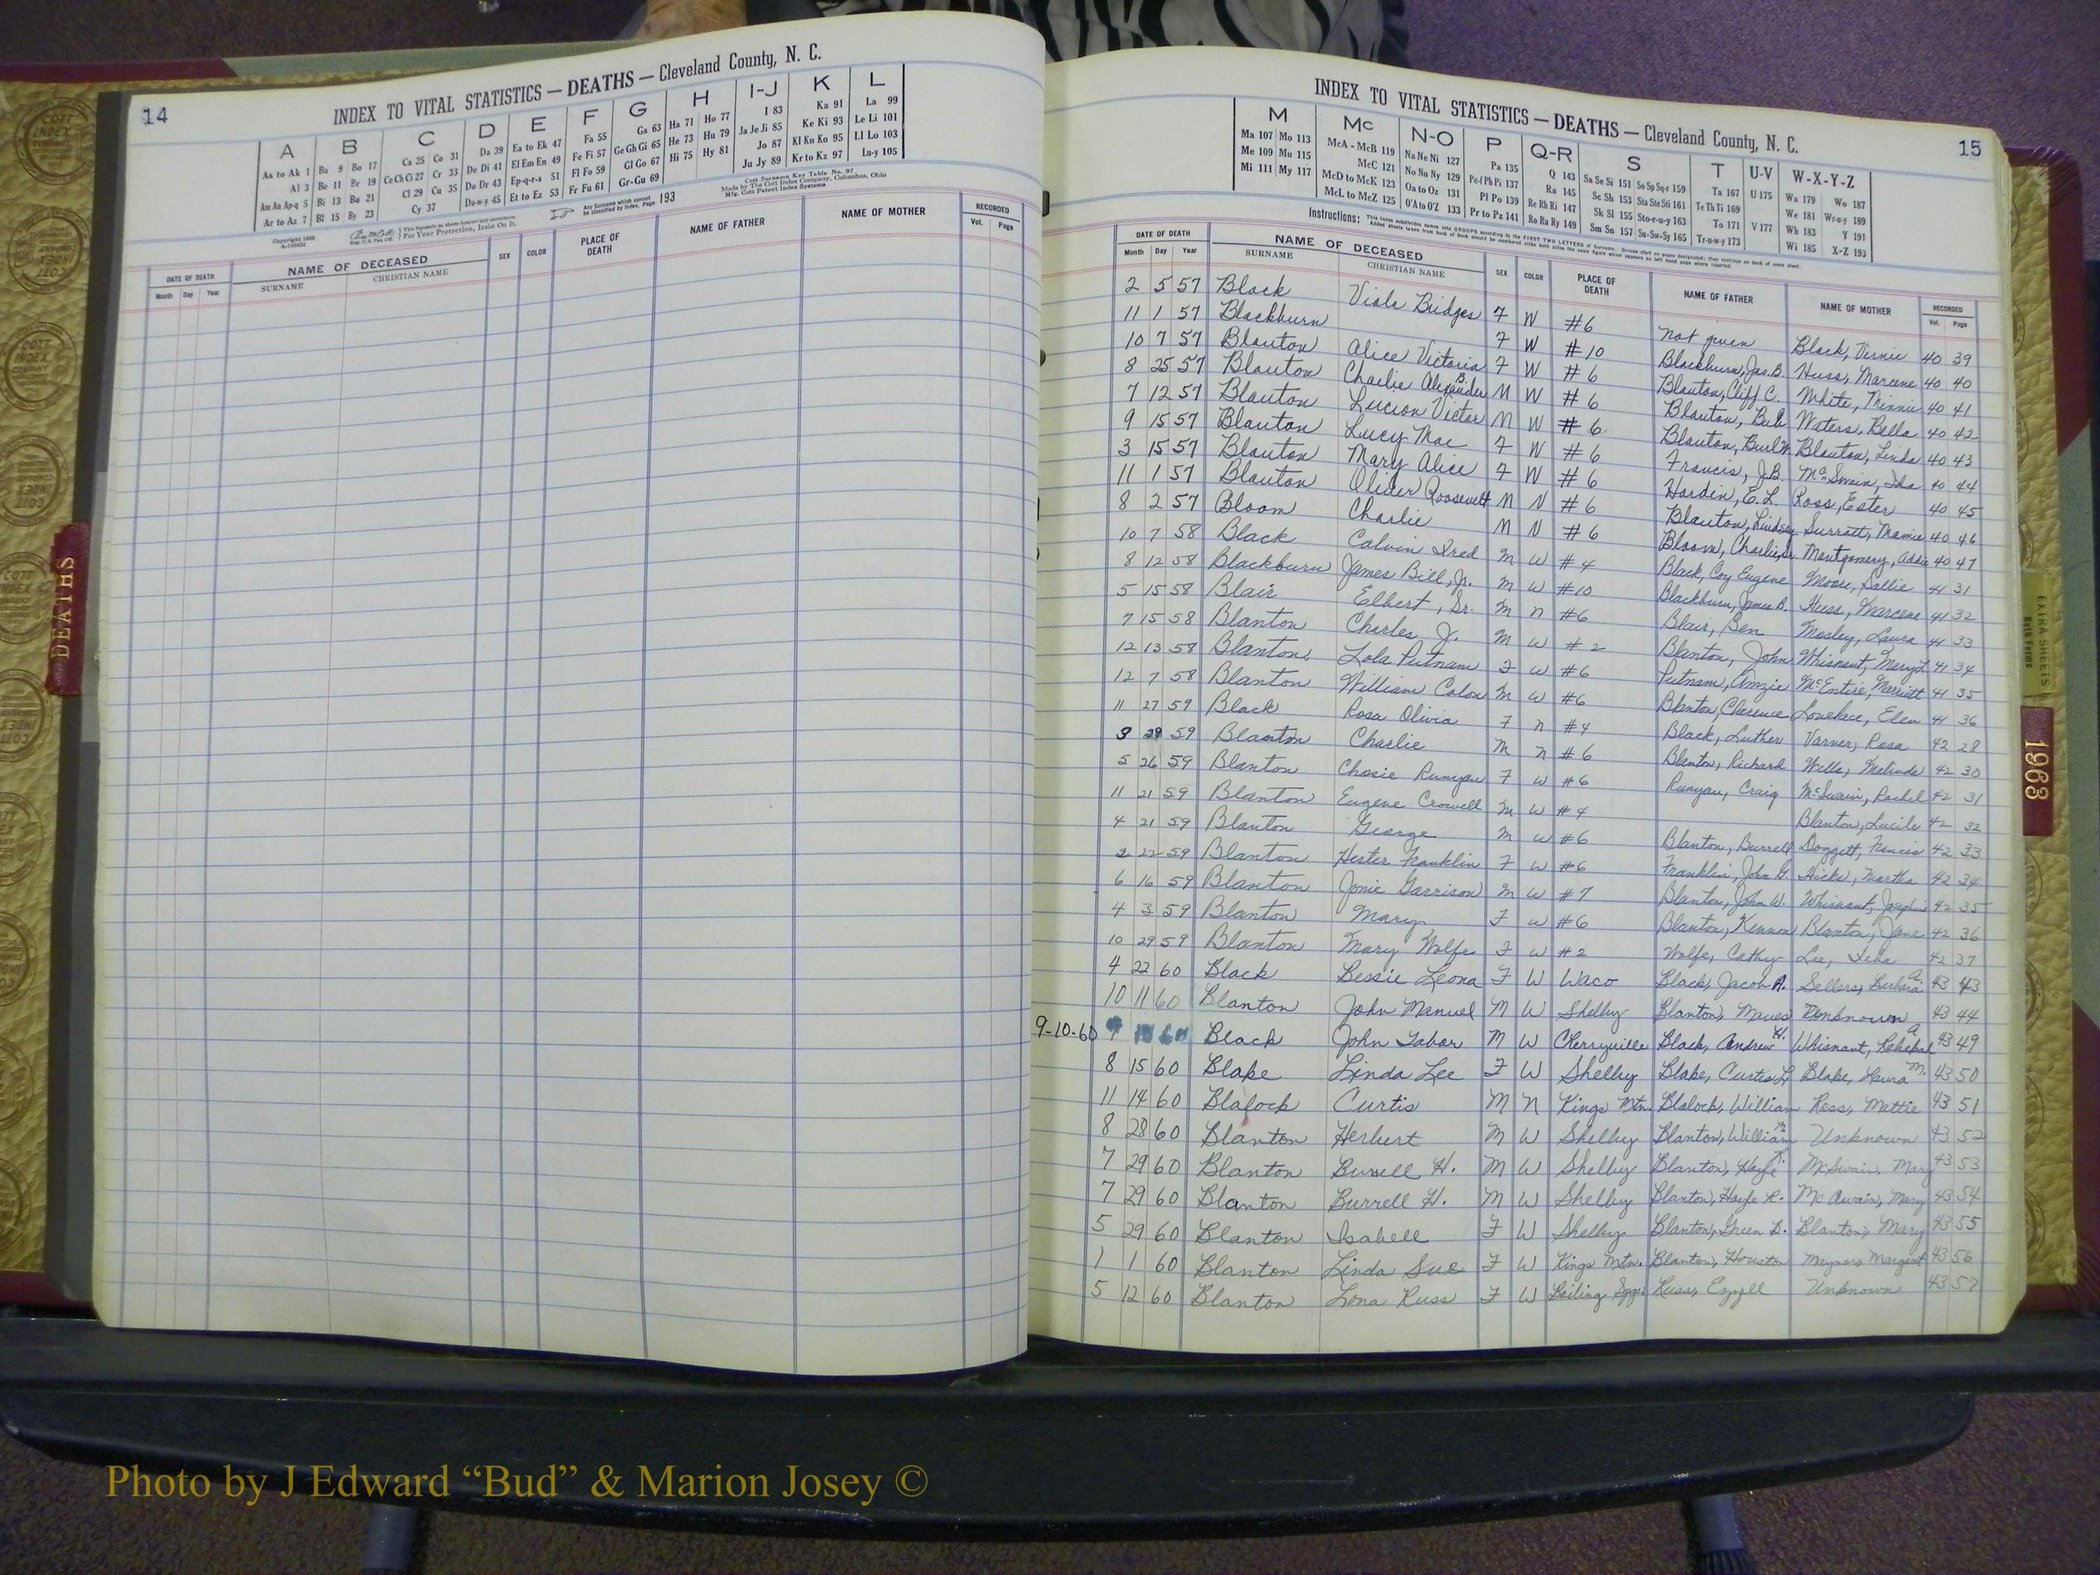 14
INDEX TO VITAL STATISTICS — DEATHS — Cleveland County, N. C.
A B C D E F G H I-J K L
Aa to Ak 1 Ba 9 Bo 17 Ca 25 Co 31 Da 39 Ea to Ek 47 Fa 55 Ga 63 Ha 71 Ho 77 I 83 Ka 91 La 99
Al 3 Be 11 Br 19 Ce Ch Ci 27 Cr 33 De Di 41 El Em En 49 Fe Fi 57 Ge Gh Gi 65 He 73 Hu 79 Ja Je Ji 85 Ke Ki 93 Le Li 101
Am An Ap-q 5 Bi 13 Bu 21 Cl 29 Cu 35 Do Dr 43 Ep-q-r-s 51 Fl Fo 59 Gl Go 67 Hi 75 Hy 81 Jo 87 Kl Kn Ko 95 Ll Lo 103
Ar to Az 7 Bl 15 By 23 Cy 37 Du-w-y 45 Et to Ez 53 Fr Fu 61 Gr-Gu 69 Ju Jy 89 Kr to Kz 97 Lu-y 105
Any Surname which cannot be classified by Index, Page 193
Cott Surname Key Table No. 97
Made by The Cott Index Company, Columbus, Ohio
Mfg. Cott Patent Index Systems
For Your Protection, Insist On It.
DATE OF DEATH NAME OF DECEASED SEX COLOR PLACE OF DEATH NAME OF FATHER NAME OF MOTHER RECORDED
Month Day Year SURNAME CHRISTIAN NAME Vol. Page
15
INDEX TO VITAL STATISTICS — DEATHS — Cleveland County, N. C.
M Mc N-O P Q-R S T U-V W-X-Y-Z
Ma 107 Mo 113 McA - McB 119 Na Ne Ni 127 Pa 135 Q 143 Sa Se Si 151 Sn Sp Sq-r 159 Ta 167 U 175 Wa 179 Wo 187
Me 109 Mu 115 McC 121 No Nu Ny 129 Pe-f Ph Pi 137 Ra 145 Sc Sh 153 Sta Ste Sti 161 Te Th Ti 169 We 181 Wr-u-y 189
Mi 111 My 117 McD to McK 123 Oa to Oz 131 Pl Po 139 Re Rh Ri 147 Sk Sl 155 Sto-r-u-y 163 To 171 V 177 Wh 183 Y 191
McL to McZ 125 O'A to O'Z 133 Pr to Pz 141 Ro Ru Ry 149 Sm Sn 157 Su-Sw-Sy 165 Tr-u-w-y 173 Wi 185 X-Z 193
DATE OF DEATH NAME OF DECEASED SEX COLOR PLACE OF DEATH NAME OF FATHER NAME OF MOTHER RECORDED
Month Day Year SURNAME CHRISTIAN NAME Vol. Page
2 5 57 Black Viola Bridges F W #6 Not given Black, Vernie 40 39
11 1 57 Blackburn F W #10 Blackburn, Jas. B. Huss, Marcene 40 40
10 7 57 Blanton Alice Victoria F W #6 Blanton, Cliff C. White, Minnie 40 41
8 25 57 Blanton Charlie Alexander B. M W #6 Blanton, Bub Waters, Bella 40 42
7 12 57 Blanton Lucion Victor M W #6 Blanton, Burl W. Blanton, Linda 40 43
9 15 57 Blanton Lucy Mae F W #6 Francis, J.B. McSwain, Ida 40 44
3 15 57 Blanton Mary Alice F W #6 Hardin, E.L. Ross, Ester 40 45
11 1 57 Blanton Oliver Roosevelt M N #6 Blanton, Lindsey Surratt, Mamie 40 46
8 2 57 Bloom Charlie M N #6 Bloom, Charlie, Sr. Montgomery, Addie 40 47
10 7 58 Black Calvin Fred M W #4 Black, Coy Eugene Moore, Sallie 41 31
8 12 58 Blackburn James Bill, Jr. M W #10 Blackburn, James B. Huss, Marcene 41 32
5 15 58 Blair Elbert, Sr. M N #6 Blair, Ben Mosley, Laura 41 33
7 15 58 Blanton Charles J. M W #2 Blanton, John Whisnant, Mary L 41 34
12 13 58 Blanton Lola Putnam F W #6 Putnam, Amzie McEntire, Harriett 41 35
12 7 58 Blanton William Colon M W #6 Blanton, Clarence Lovelace, Ellen 41 36
11 27 59 Black Rosa Olivia F N #4 Black, Luther Varner, Rosa 42 28
3 29 59 Blanton Charlie M N #6 Blanton, Richard Wells, Malinda 42 30
5 26 59 Blanton Chosie Runyan F W #6 Runyan, Craig McSwain, Rachel 42 31
11 21 59 Blanton Eugene Crowell M W #4 Blanton, Lucile 42 32
4 21 59 Blanton George M W #6 Blanton, Burrell Doggett, Frances 42 33
2 22 59 Blanton Hester Franklin F W #6 Franklin, John G. Hicks, Martha 42 34
6 16 59 Blanton Jonie Garrison M W #7 Blanton, John W. Whisnant, Josephine 42 35
4 3 59 Blanton Mary F W #6 Blanton, Kennon Blanton, Jane 42 36
10 29 59 Blanton Mary Wolfe F W #2 Wolfe, Cathy Lee, Lela 42 37
4 22 60 Black Bessie Leona F W Waco Black, Jacob A. Sellers, Barbara A. 43 43
10 11 60 Blanton John Manuel M W Shelby Blanton, Unknown 43 44
9-10-60 9 10 60 Black John Tabor M W Cherryville Black, Andrew H. Whisnant, Rebekah A 43 49
8 15 60 Blake Linda Lee F W Shelby Blake, Curtis L. Blake, Laura M. 43 50
11 14 60 Blalock Curtis M N Kings Mtn. Blalock, William Ross, Mattie 43 51
8 28 60 Blanton Herbert M W Shelby Blanton, William M Unknown 43 52
7 29 60 Blanton Burrell H. M W Shelby Blanton, Hoyle R. McSwain, Mary 43 53
7 29 60 Blanton Burrell H. M W Shelby Blanton, Hoyle R. McSwain, Mary 43 54
5 29 60 Blanton Isabell F W Shelby Blanton, Green B. Blanton, Mary 43 55
1 1 60 Blanton Linda Sue F W Kings Mtn. Blanton, Houston Margaret 43 56
5 12 60 Blanton Lona Russ F W Boiling Spgs. Russ, Unknown 43 57
DEATHS
EXTRA SHEETS
1963
Photo by J Edward “Bud” & Marion Josey ©